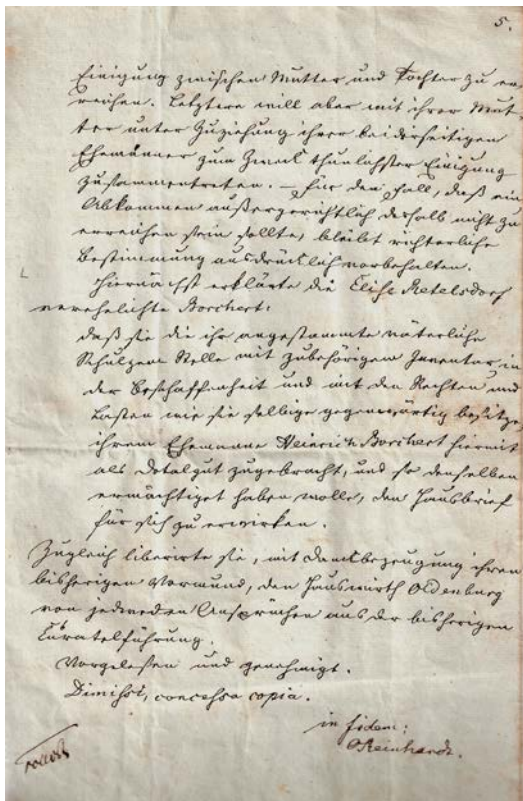 5.
Einigung zwischen Mutter und Tochter zu er-
reichen. Letztere will aber mit ihrer Mut-
ter unter Zuziehung ihrer beiderseitigen
Ehemänner zum Zweck thunlichster Einigung
zusammentreten. – Für den Fall, daß ein
Abkommen außergerichtlich deshalb nicht zu
erreichen sein sollte, bleibt richterliche
Bestimmung ausdrücklich vorbehalten.
Hiernächst erklärte die Elise Retelsdorf
verehelichte Borchert:
daß sie die ihr angestammte väterliche
Schulzen Stelle mit zubehörigem Inventar in
der Beschaffenheit und mit den Rechten und
Lasten wie sie selbige gegenwärtig besitze,
ihrem Ehemanne Heinrich Borchert hiermit
als Dotalgut zugebracht, und so denselben
ermächtiget haben wolle, den Hausbrief
für sich zu erwirken.
Zugleich liberirte sie, mit Dankbezeugung ihren
bisherigen Vormund, den Hauswirth Oldenburg
von jedweden Ansprüchen aus der bisherigen
Curatelführung.
Vorgelesen und genehmigt.
Dimissi, concessa copia.
in fidem:
Reinhardt.